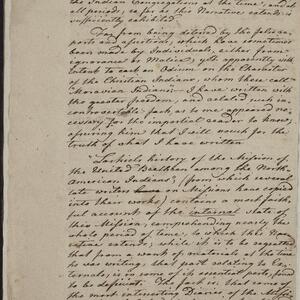 the Indian Congregations at the time, and at
all periods, as far as this Narrative extends, is
sufficiently exhibited.
Far from being deterred by the false re-
ports and assertions, which have sometimes
been made by Individuals, either from
ignorance or Malice, with apparently with
intent to cast an Odium on the Character
of the Christian Indians, whom these call
Moravian Indians; I have written with
the greater freedom, and related such in-
controvertible facts as to me appeared ne-
cessary for the impartial reader to know,
assuring him that I will vouch for the
truth of what I have written
Loskiels history of the Mission of
the United Brethren among the North
American Indians, (from which several
late writers on Missions have copied
into their works) contains a most faith-
ful account of the internal State of
this Mission, comprehending nearly the
whole period of time, to which this Nar-
rative extends; while it is to be regretted
that from a want of materials at the time
he was writing, that part relating to Ex-
ternals, is in some of its essential parts, found
to be deficient. The fact is, that some
of the most interesting Diaries of the